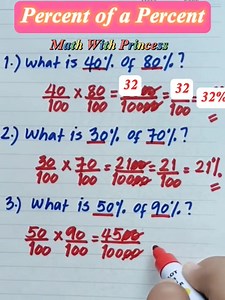 Percent of a Percent
Math With Princess
1.) What is 40% of 80%?
40/100 × 80/100 = 32/10000 = 32/100 = 32%
2.) What is 30% of 70%?
30/100 × 70/100 = 2100/10000 = 21/100 = 21%
3.) What is 50% of 90%?
50/100 × 90/100 = 4500/10000